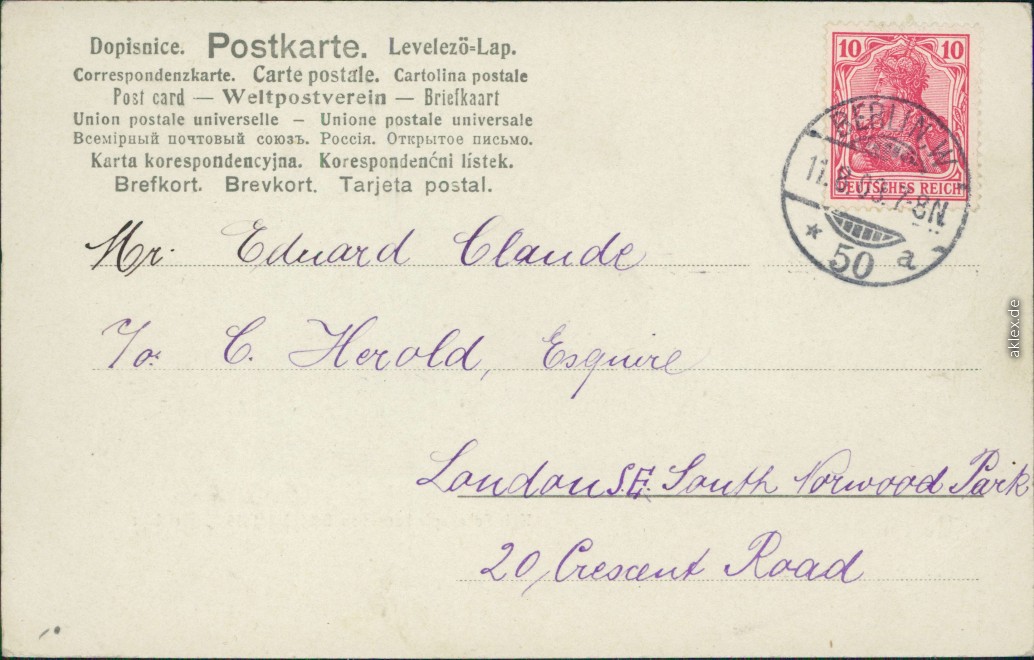 Dopisnice. Postkarte. Levelező-Lap.
Correspondenzkarte. Carte postale. Cartolina postale
Post card — Weltpostverein — Briefkaart
Union postale universelle — Unione postale universale
Всемірный почтовый союзъ. Россія. Открытое письмо.
Karta korespondencyjna. Korespondenćni lístek.
Brefkort. Brevkort. Tarjeta postal.
10 10
DEUTSCHES REICH
BERLIN. W
11.8.03.7-8N.
* 50 a
Mr. Eduard Claude
c/o. C. Herold, Esquire
London S.E. South Norwood Park
20, Crescent Road
aklex.de